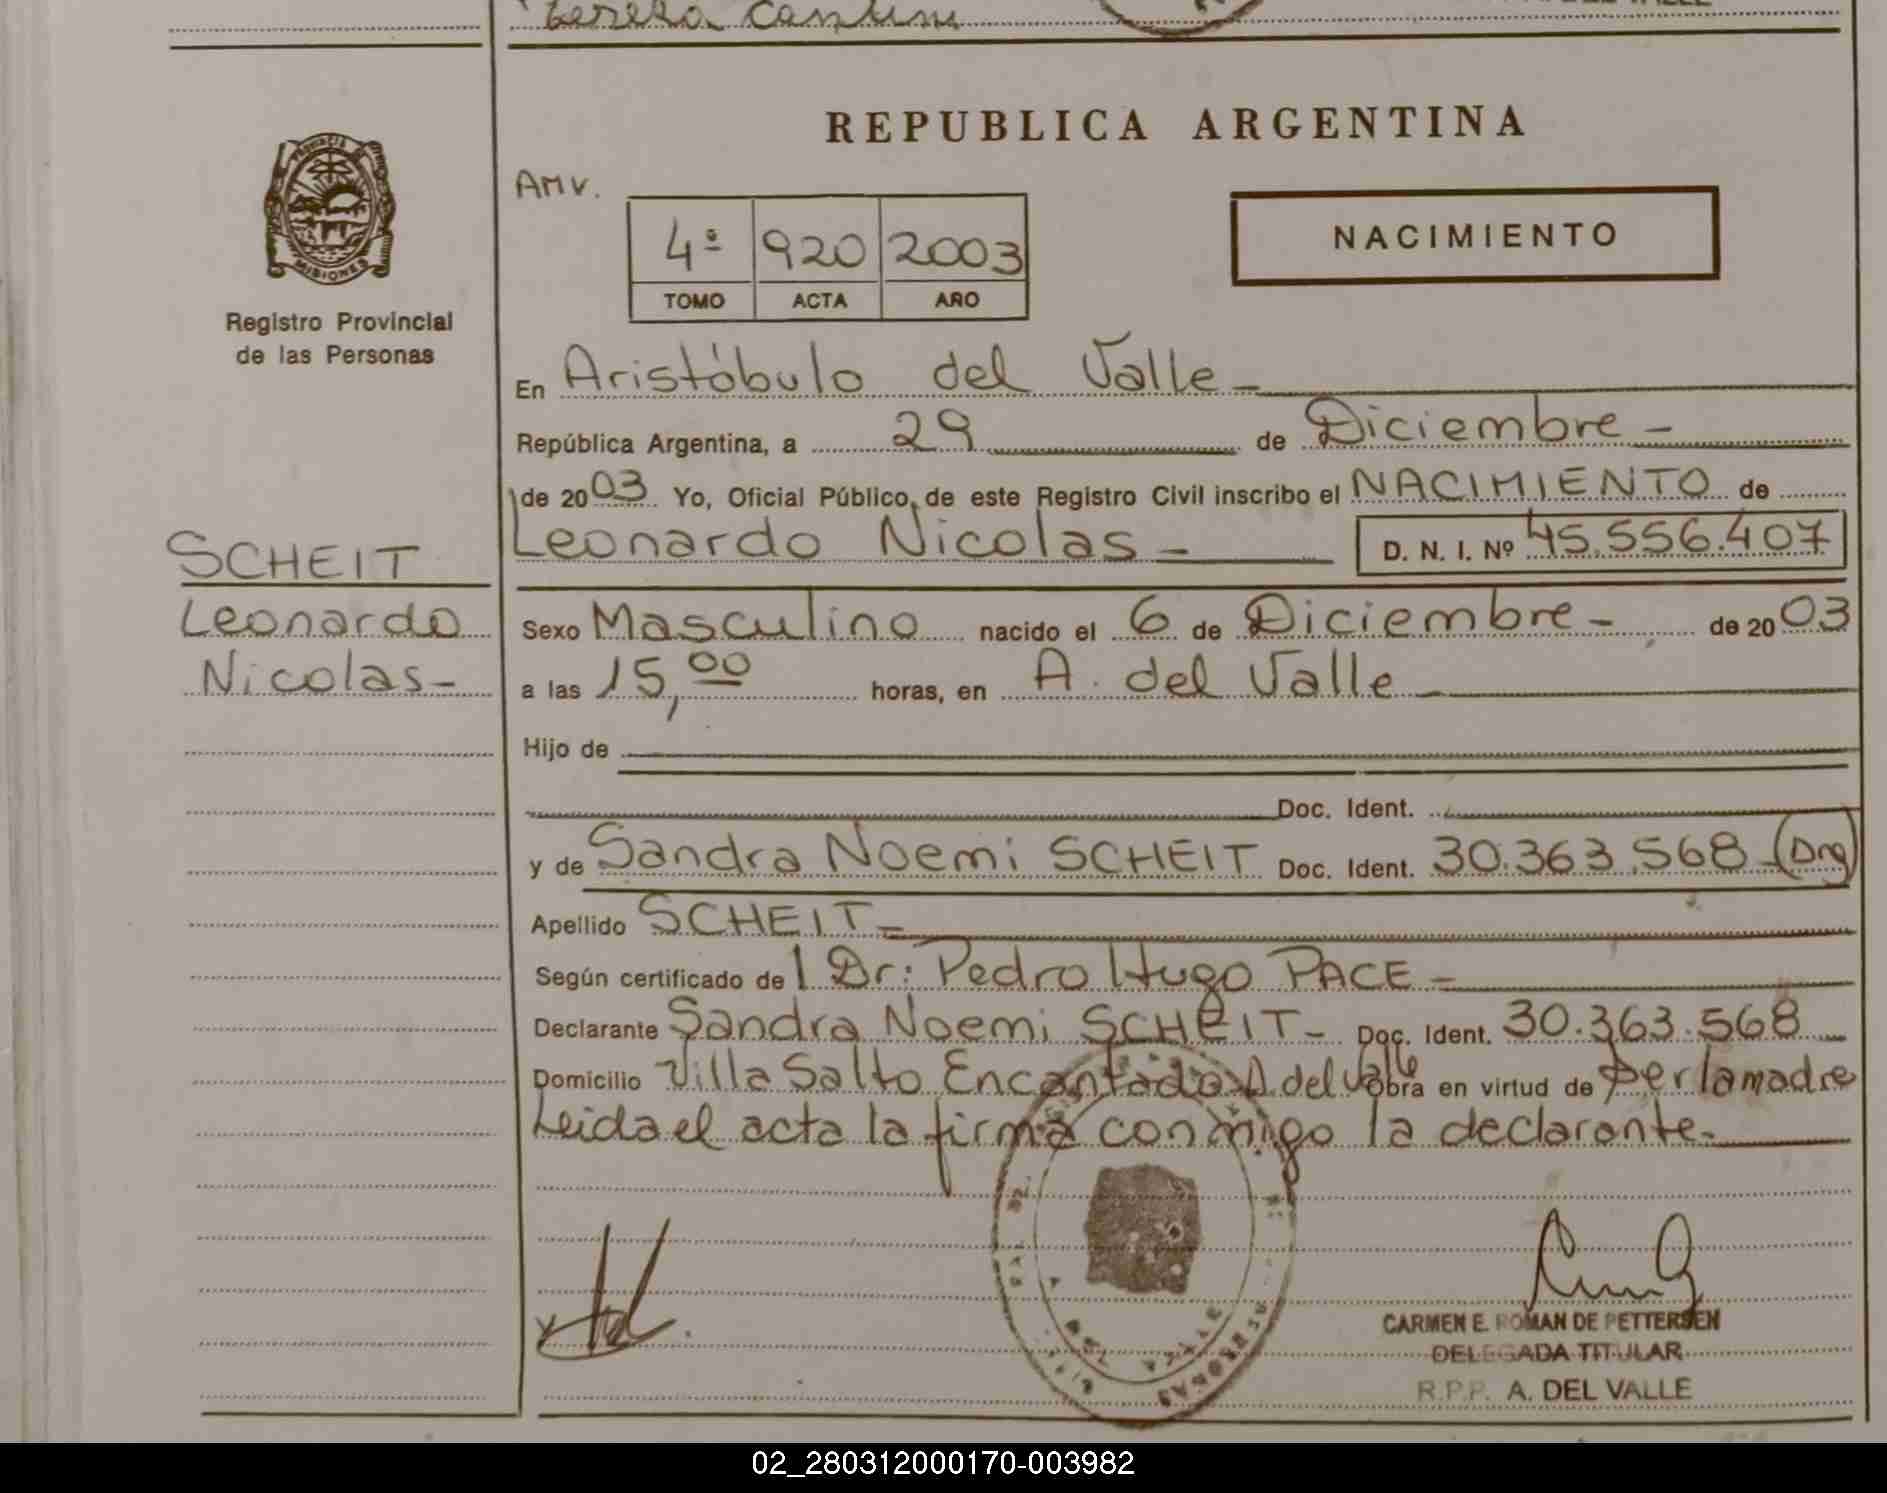 Teresa
REPUBLICA ARGENTINA
PROVINCIA DE
MISIONES
Registro Provincial
de las Personas
AMV.
4º 920 2003
TOMO ACTA AÑO
NACIMIENTO
En Aristóbulo del Valle-
República Argentina, a 29 de Diciembre-
de 2003 Yo, Oficial Público, de este Registro Civil inscribo el NACIMIENTO de
Leonardo Nicolas- D. N. I. Nº 45.556.407
SCHEIT
Leonardo
Nicolas-
Sexo Masculino nacido el 6 de Diciembre- de 2003
a las 15,00 horas, en A. del Valle-
Hijo de
Doc. Ident.
y de Sandra Noemi SCHEIT Doc. Ident. 30.363.568-(Arg)
Apellido SCHEIT-
Según certificado de l Dr: Pedro Hugo PACE-
Declarante Sandra Noemi SCHEIT- Doc. Ident. 30.363.568
Domicilio Villa Salto Encantado A. del Valle obra en virtud de ser la madre
Leida el acta la firma conmigo la declarante-
CARMEN E. ROMAN DE PETTERSEN
DELEGADA TITULAR
R.P.P. A. DEL VALLE
02_280312000170-003982